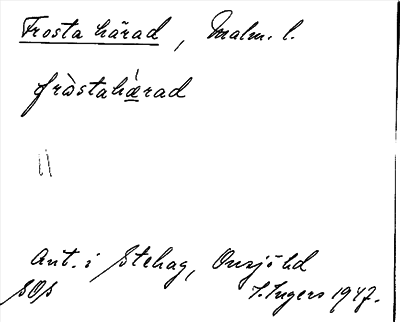 Frosta härad, Malm. l.
fròstahǽrad
Ant. i Stehag, Onsjö hd
SOS I. Ingers 1947.